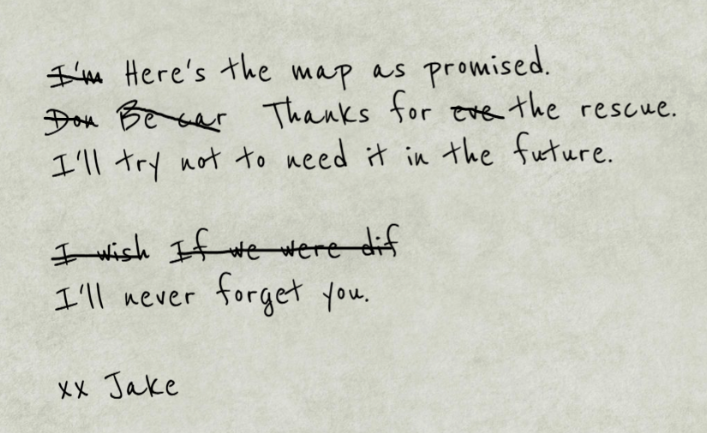 I'm Here's the map as promised.
Don Be car Thanks for eve the rescue.
I'll try not to need it in the future.
I wish If we were dif
I'll never forget you.
xx Jake